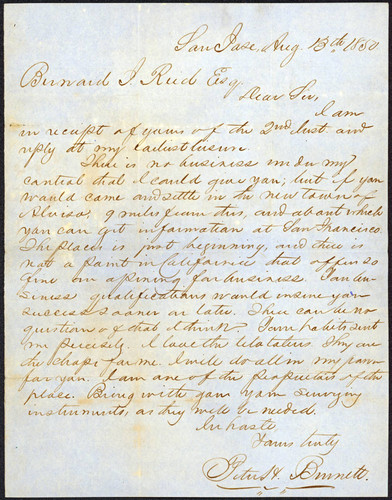 San Jose, Aug. 13th 1850
Bernard J. Reid Esq.
Dear Sir,
I am
in receipt of yours of the 2nd Inst and
reply at my earliest leisure.
There is no business under my
control that I could give you; but if you
would come and settle in the new town of
Alviso, 9 miles from this, and about which
you can get information at San Francisco.
The place is just beginning, and there is
not a point in California that offers so
fine an opening for business. Your bu-
siness qualifications would insure you
success sooner or later. There can be no
question of that I think. Your habits suit
me precisely. I love the They are
the chaps for me. I will do all in my power
for you. I am one of the proprietors of the
place. Bring with you your surveying
instruments, as they will be needed.
In haste
Yours truly
Peter H. Burnett.